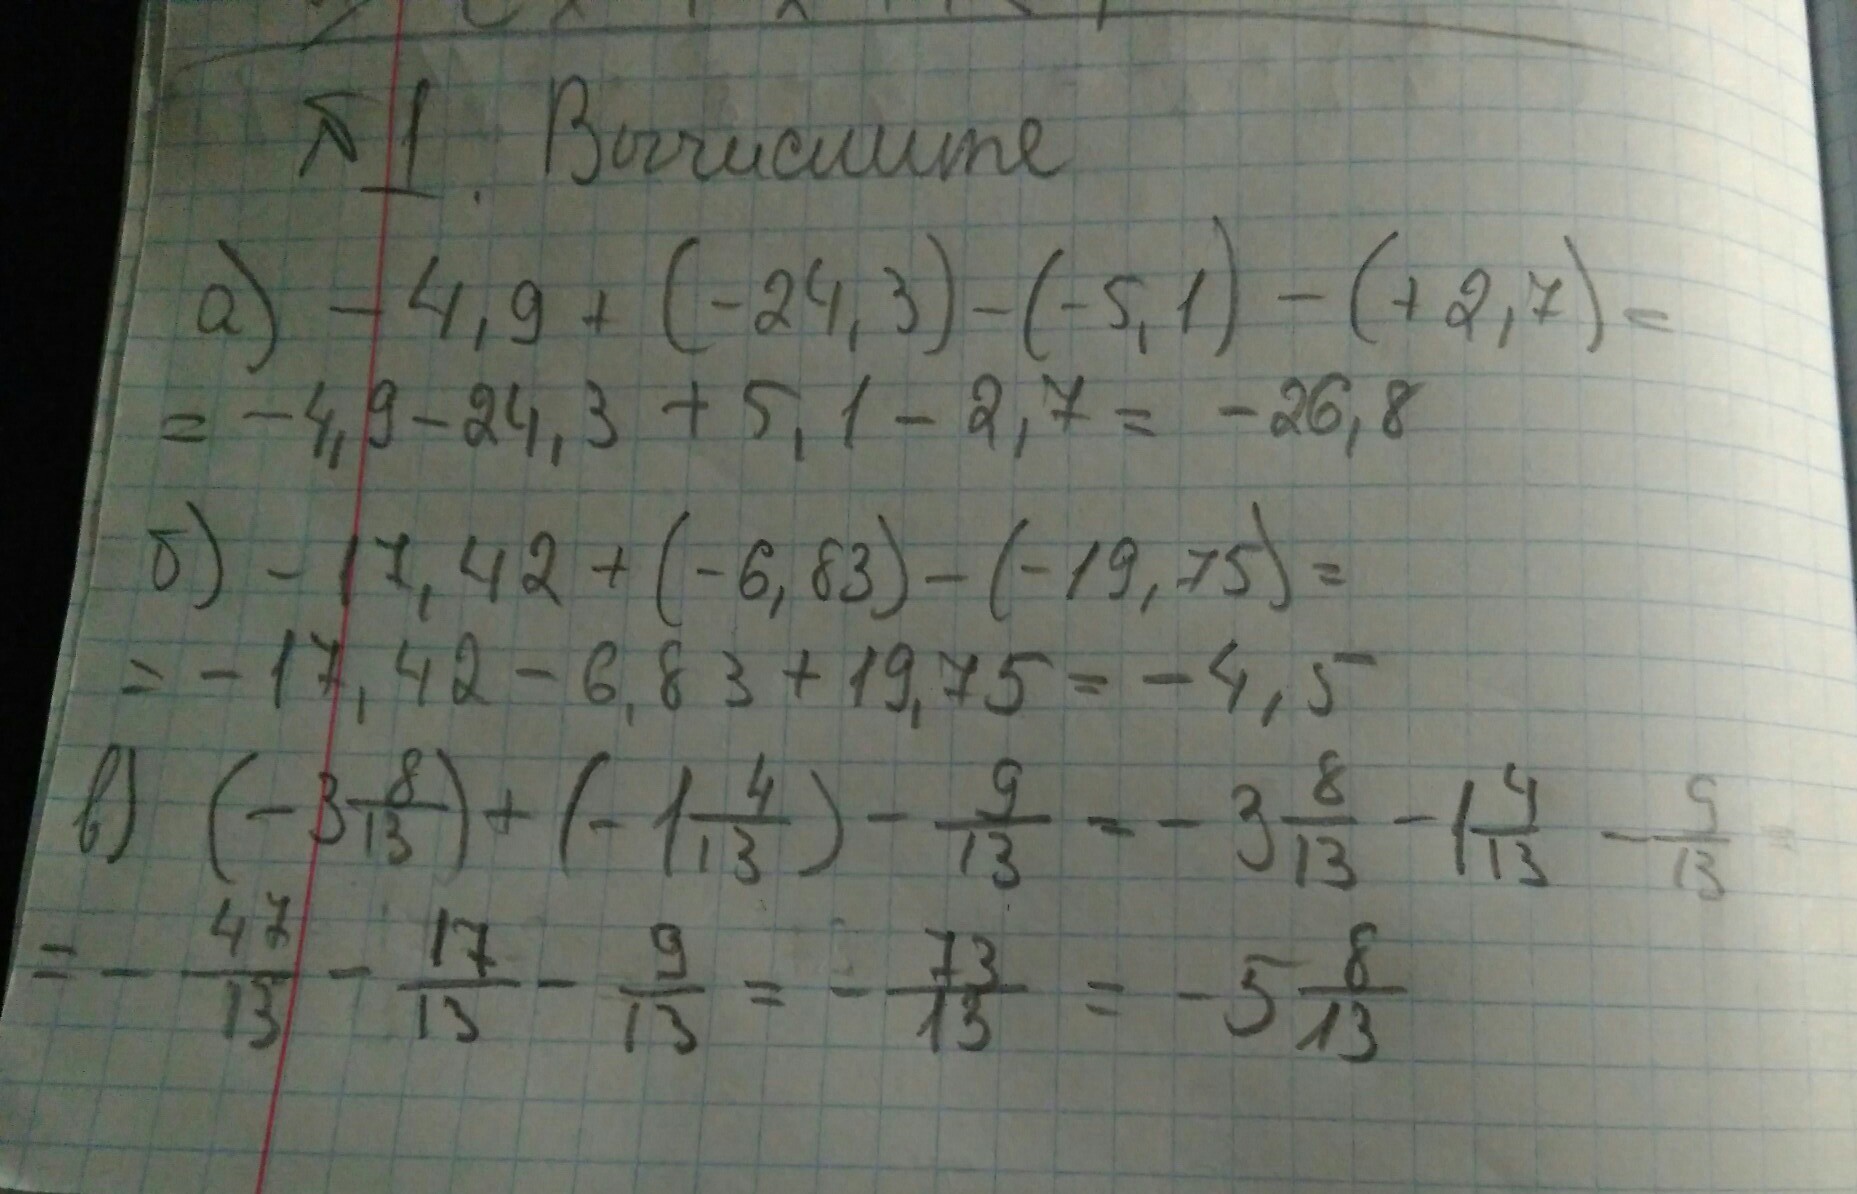 № 1. Вычислите
а) - 4,9 + (-24,3) - (-5,1) - (+2,7) =
= -4,9 - 24,3 + 5,1 - 2,7 = -26,8
б) - 17,42 + (-6,83) - (-19,75) =
= -17,42 - 6,83 + 19,75 = -4,5
в) (-3 8/13) + (-1 4/13) - 9/13 = -3 8/13 - 1 4/13 - 9/13 =
= - 47/13 - 17/13 - 9/13 = - 73/13 = -5 8/13